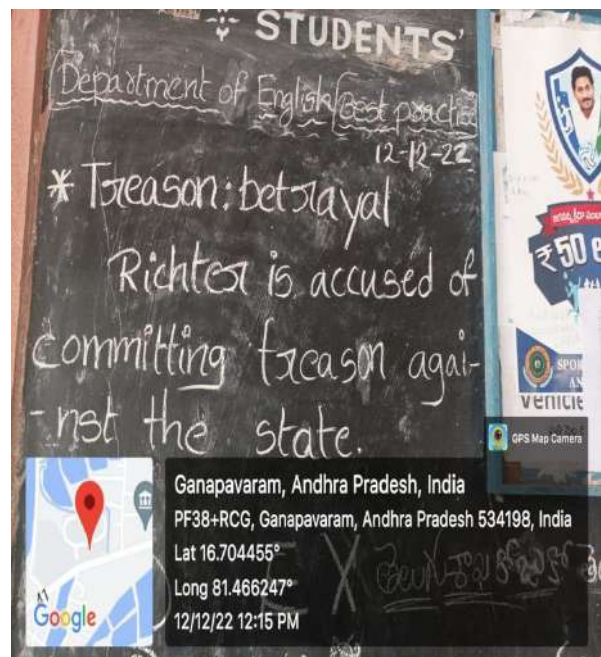 STUDENTS'
Department of English/Best practice
12-12-22
* Treason: betrayal
Richter is accused of
committing treason agai-
-nst the state.
₹50
SPOR
AN
Vehicle
GPS Map Camera
Ganapavaram, Andhra Pradesh, India
PF38+RCG, Ganapavaram, Andhra Pradesh 534198, India
Lat 16.704455°
Long 81.466247°
12/12/22 12:15 PM
Google
E X తెలుగు శాఖ